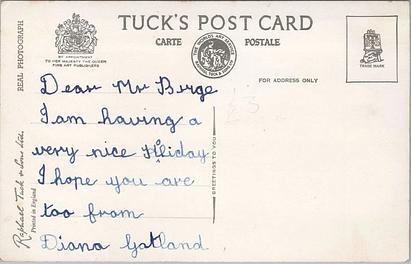 TUCK'S POST CARD
CARTE POSTALE
BY APPOINTMENT
TO HER MAJESTY THE QUEEN
FINE ART PUBLISHERS
REAL PHOTOGRAPH
THE WORLD'S ART SERVICE
RAPHAEL TUCK & SONS LTD
TRADE MARK
FOR ADDRESS ONLY
£3
Dear Mr Berge
I am having a
very nice Holiday
I hope you are
too from
Diana Gatland
GREETINGS TO YOU
Raphael Tuck & Sons Ltd.
Printed in England